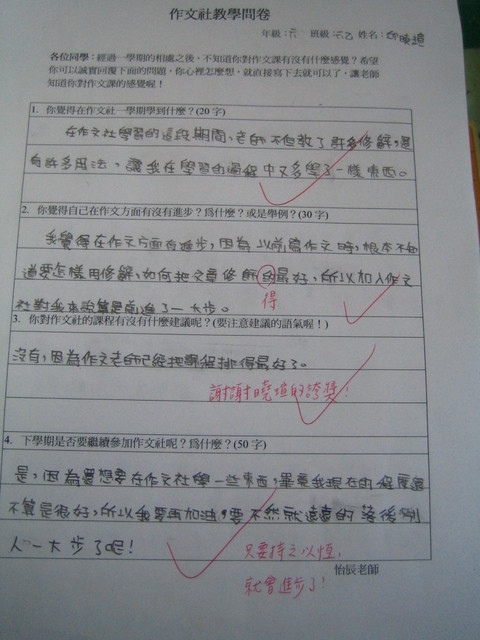 作文社教學問卷
年級:六 班級:六乙 姓名:邱曉瑄
各位同學:經過一學期的相處之後,不知道你對作文課有沒有什麼感覺?希望
你可以誠實回覆下面的問題,你心裡怎麼想,就直接寫下去就可以了,讓老師
知道你對作文課的感覺喔!
1. 你覺得在作文社一學期學到什麼?(20字)
在作文社學習的這段期間,老師不但教了許多修辭,還
有許多用法、讓我在學習的過程中又多學了一樣東西。
2. 你覺得自己在作文方面有沒有進步?為什麼?或是舉例?(30字)
我覺得在作文方面有進步,因為以前寫作文時,根本不知
道要怎樣用修辭,如何把文章修飾的最好,所以加入作文
得
社對我來說算是前進了一大步。
3. 你對作文社的課程有沒有什麼建議呢?(要注意建議的語氣喔!)
沒有,因為作文老師已經把課程排得最好了。
謝謝曉瑄的誇獎!
4. 下學期是否要繼續參加作文社呢?為什麼?(50字)
是,因為還想要在作文社學一些東西,畢竟我現在的程度還
不算是很好,所以我要再加油,要不然就真的落後別
人一大步了吧!
只要持之以恆,
就會進步了!
怡辰老師